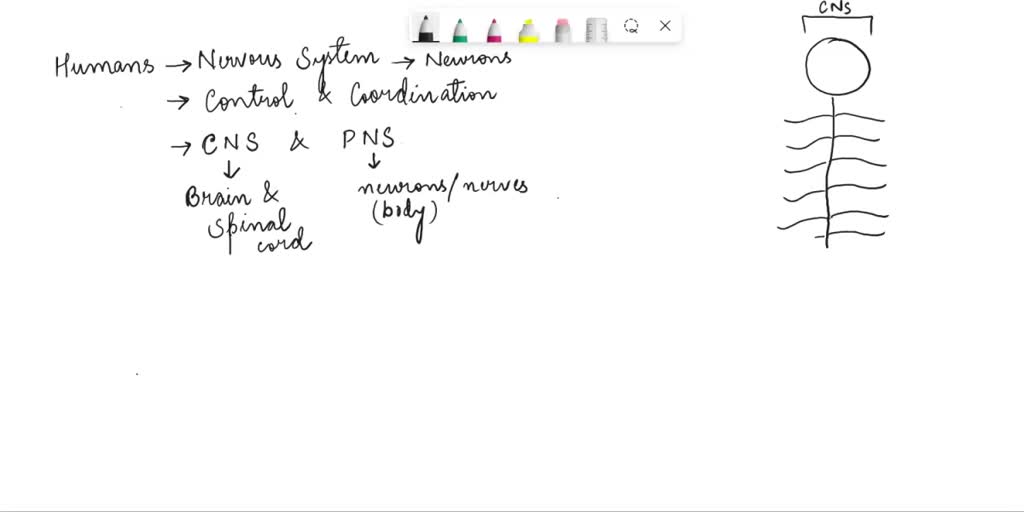 CNS
Humans → Nervous System → Neurons
→ Control & Coordination
→ CNS & PNS
↓ ↓
Brain & neurons/nerves
spinal (body)
cord